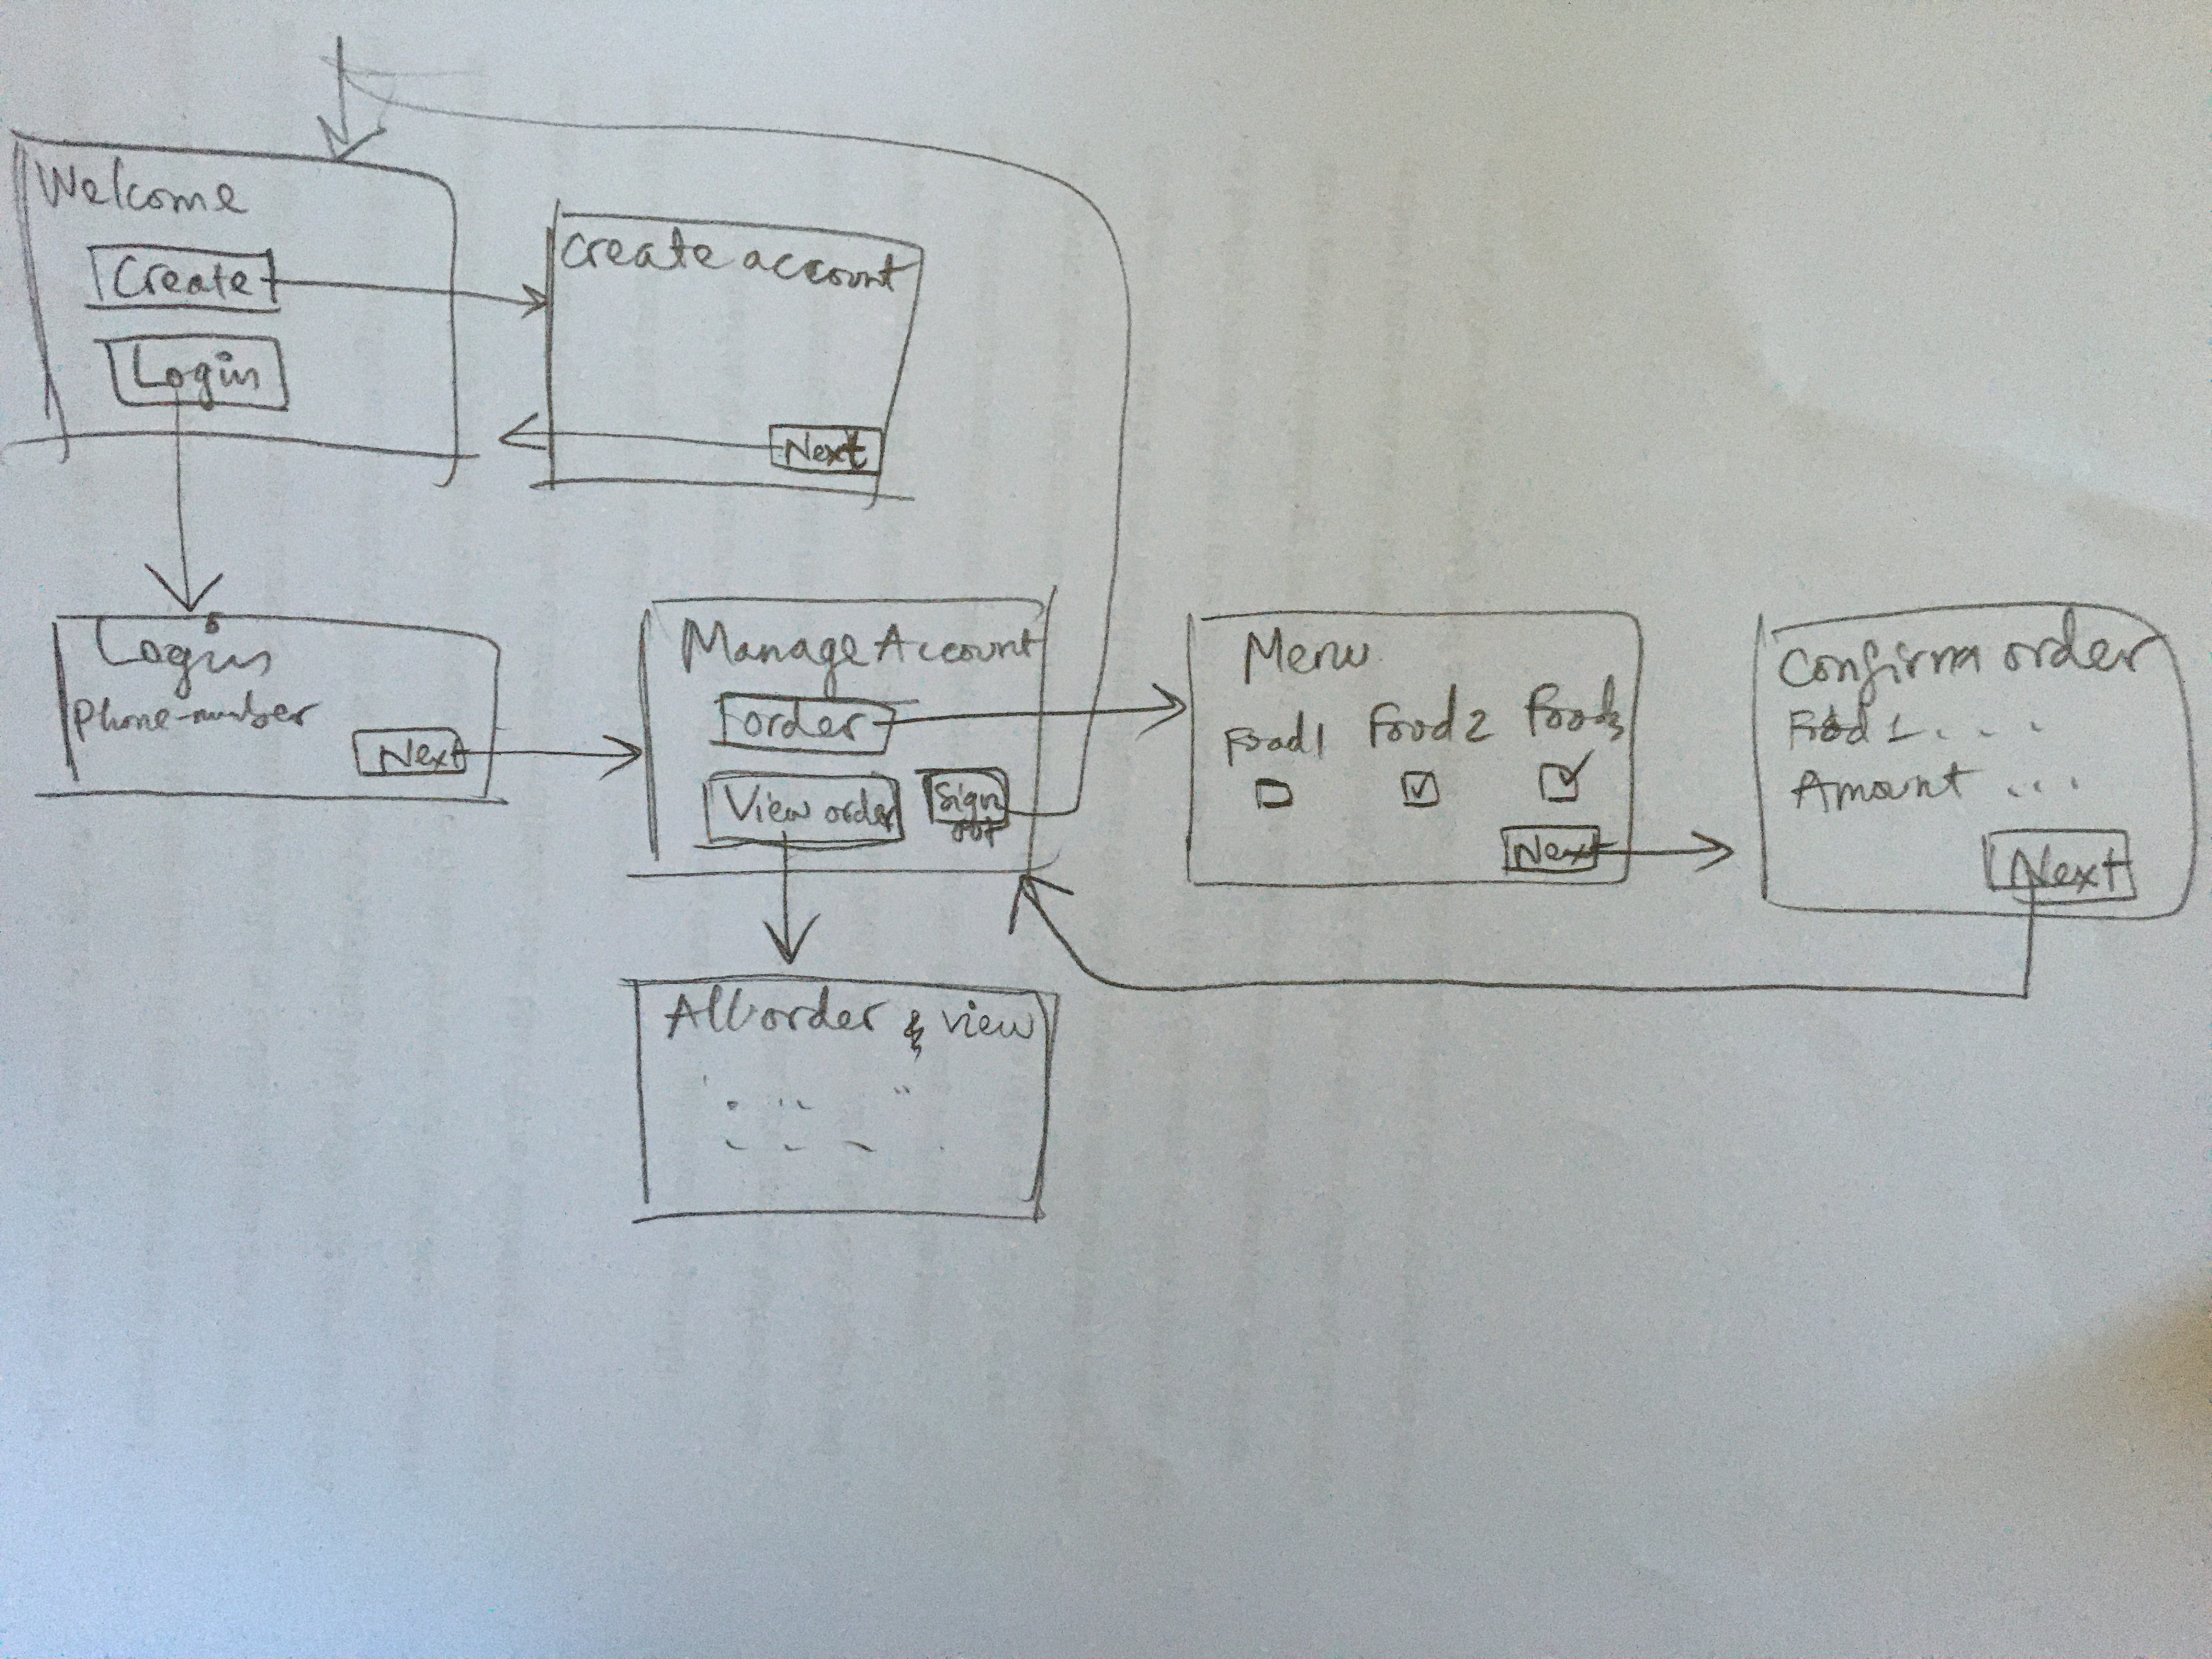 Welcome
Create
Login
Create account
Next
Login
Phone-number
Next
Manage Account
order
View order
Sign
out
Menu
Food1 Food2 Food3
Next
Confirm order
Food 1 . . . .
Amount ...
Next
All order & view